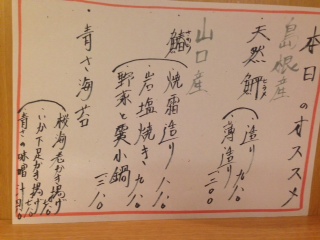 本日のオススメ
島根産
天然鰤
造り 九八〇
薄造り 一二〇〇
山口産
鰆 焼霜造り 一一八〇
岩塩焼き 九八〇
野菜と羹小鍋 一一八〇
青さ海苔
桜海老かき揚げ
いか下足かき揚げ 七八〇
青さの味噌汁